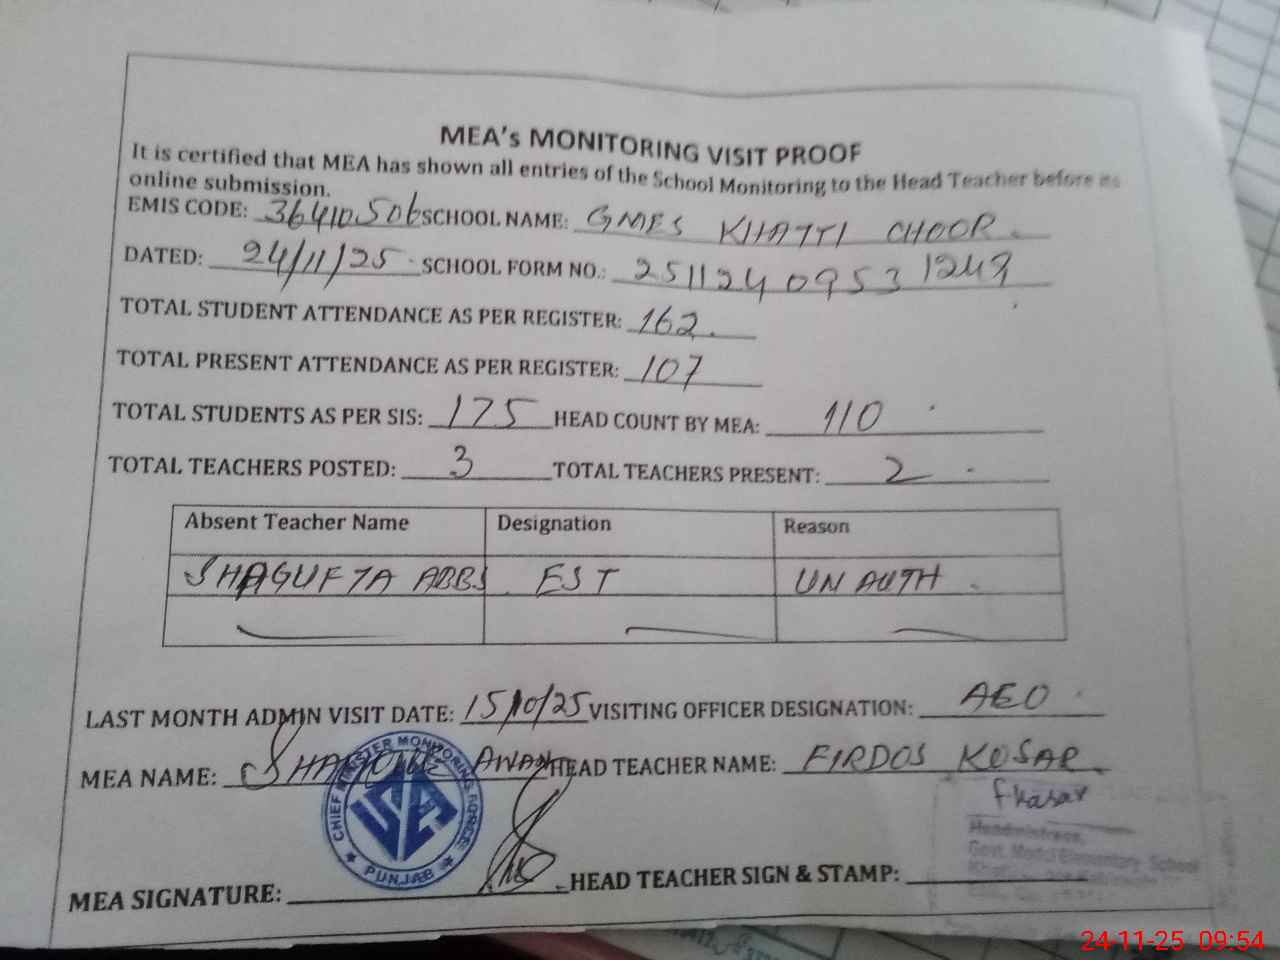 MEA's MONITORING VISIT PROOF
It is certified that MEA has shown all entries of the School Monitoring to the Head Teacher before its
online submission.
EMIS CODE: 36410506 SCHOOL NAME: GMES KHATTI CHOOR.
DATED: 24/11/25 SCHOOL FORM NO.: 2511240953 1249
TOTAL STUDENT ATTENDANCE AS PER REGISTER: 162
TOTAL PRESENT ATTENDANCE AS PER REGISTER: 107
TOTAL STUDENTS AS PER SIS: 175 HEAD COUNT BY MEA: 110
TOTAL TEACHERS POSTED: 3 TOTAL TEACHERS PRESENT: 2
Absent Teacher Name Designation Reason
SHAGUFTA ABBS EST UN AUTH
LAST MONTH ADMIN VISIT DATE: 15/10/25 VISITING OFFICER DESIGNATION: AEO
MEA NAME: AWAN HEAD TEACHER NAME: FIRDOS KOSAR
CHIEF MINISTER MONITORING FORCE
PUNJAB
fkasar
Headmistress,
Govt. Model Elementary School
MEA SIGNATURE: HEAD TEACHER SIGN & STAMP:
24-11-25 09:54